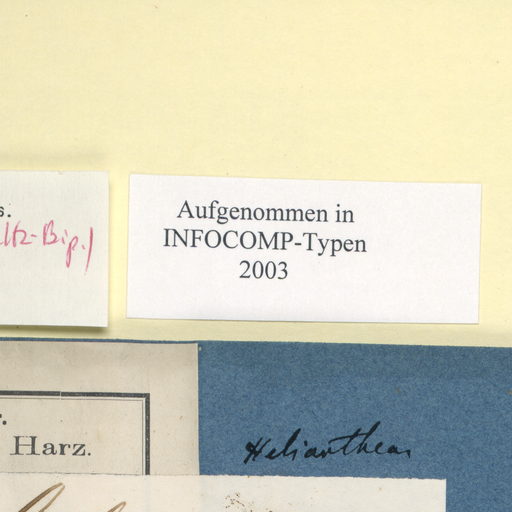 s.
ltz-Bip.)
Aufgenommen in
INFOCOMP-Typen
2003
r.
Harz.
Heliantheae